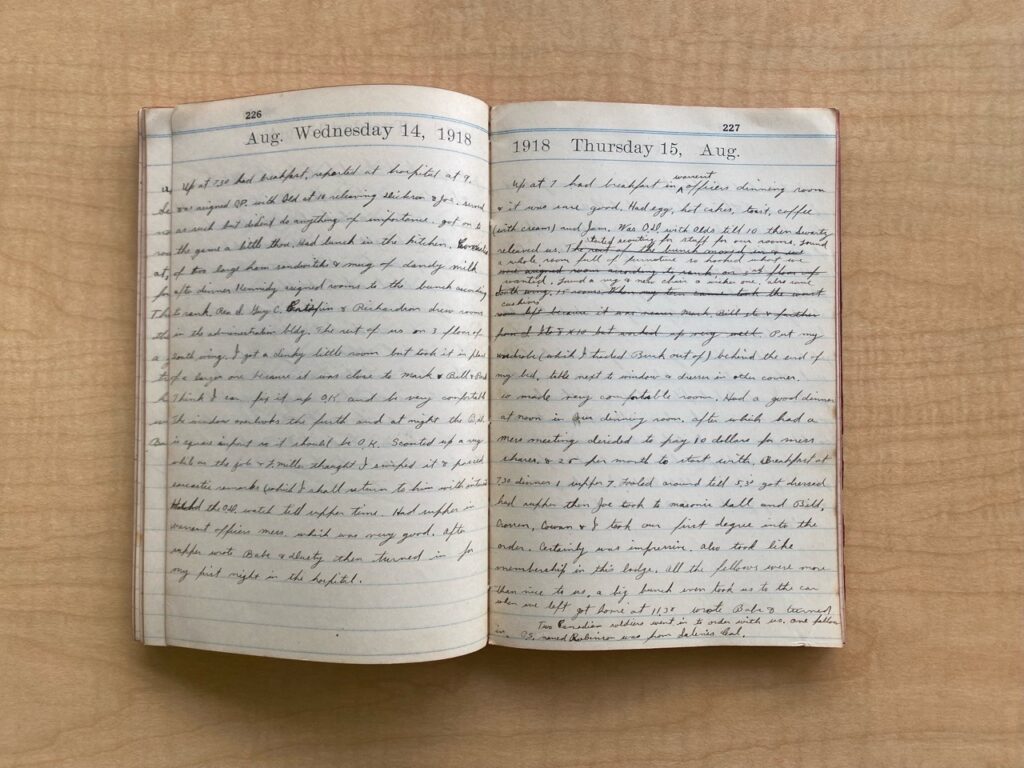 226
Aug. Wednesday 14, 1918
Up at 7.30 had breakfast, reported at hospital at 9.
was asigned O.D. with Old at 10 releaving & Joe. served
as such but didn't do anything of importance. got on to
the game a little tho. Had lunch in the kitchen.
of two large ham sandwitches & mug of dandy milk
after dinner Kennedy asigned rooms to the bunch according
to rank. Rea d. Guy C. & Richardson drew rooms
in the administration bldg. The rest of us on 3 floor of
south wing. I got a dinky little room but took it in place
of a larger one because it was close to Mark & Bill &
Think I can fix it up O.K. and be very comfortable
The window overlooks the and at night the
is so it should be O.K. Scouted up a rug
while on the job & F. Miller thought I swiped it & passed
sarcastic remarks (which I shall return to him with
the O.D. watch till supper time. Had supper in
warrant officers mess, which was very good. After
supper wrote Babe & Dusty then turned in for
my first night in the hospital.
227
1918 Thursday 15, Aug.
warrent
Up at 7 had breakfast in officers dinning room
& it was sure good. Had egg, hot cakes, toast, coffee
(with cream) and jam. Was O.D. with Olds till 10 then Swarty
releaved us. The rest of the bunch moved in & we
started scouting for stuff for our rooms, found
a whole room full of furniture so hooked what we
were asigned room acording to rank on 3rd floor of
wanted. found a rug & new chair a wicker one, also some
south wing. 15 rooms. When my turn came took the worst
cushions
left because it was nearer Mark, Bill etc & further
8 x 10 but up very well. Put my
wardrobe (which I Burk out of) behind the end of
my bed, table next to window & dresser in other corner.
so made very comfortable room. Had a good dinner
at noon in our dinning room, after which had a
mess meeting decided to pay 10 dollars for mess
shares, & 25 per month to start with. Breakfast at
7.30 dinner 1 supper 7 around till 5.30 got dressed
had supper then Joe took to masonic hall and Bill,
Craven, Cowan & I took our first degree into the
order. Certainly was impressive. also took life
membership in this lodge. All the fellows were more
than nice to us, a big bunch even took us to the car
when we left got home at 11.30 wrote Babe & turned
in. Two Canadian soldiers went in to order with us. one fellow
named Robinson was from Salenies Cal.